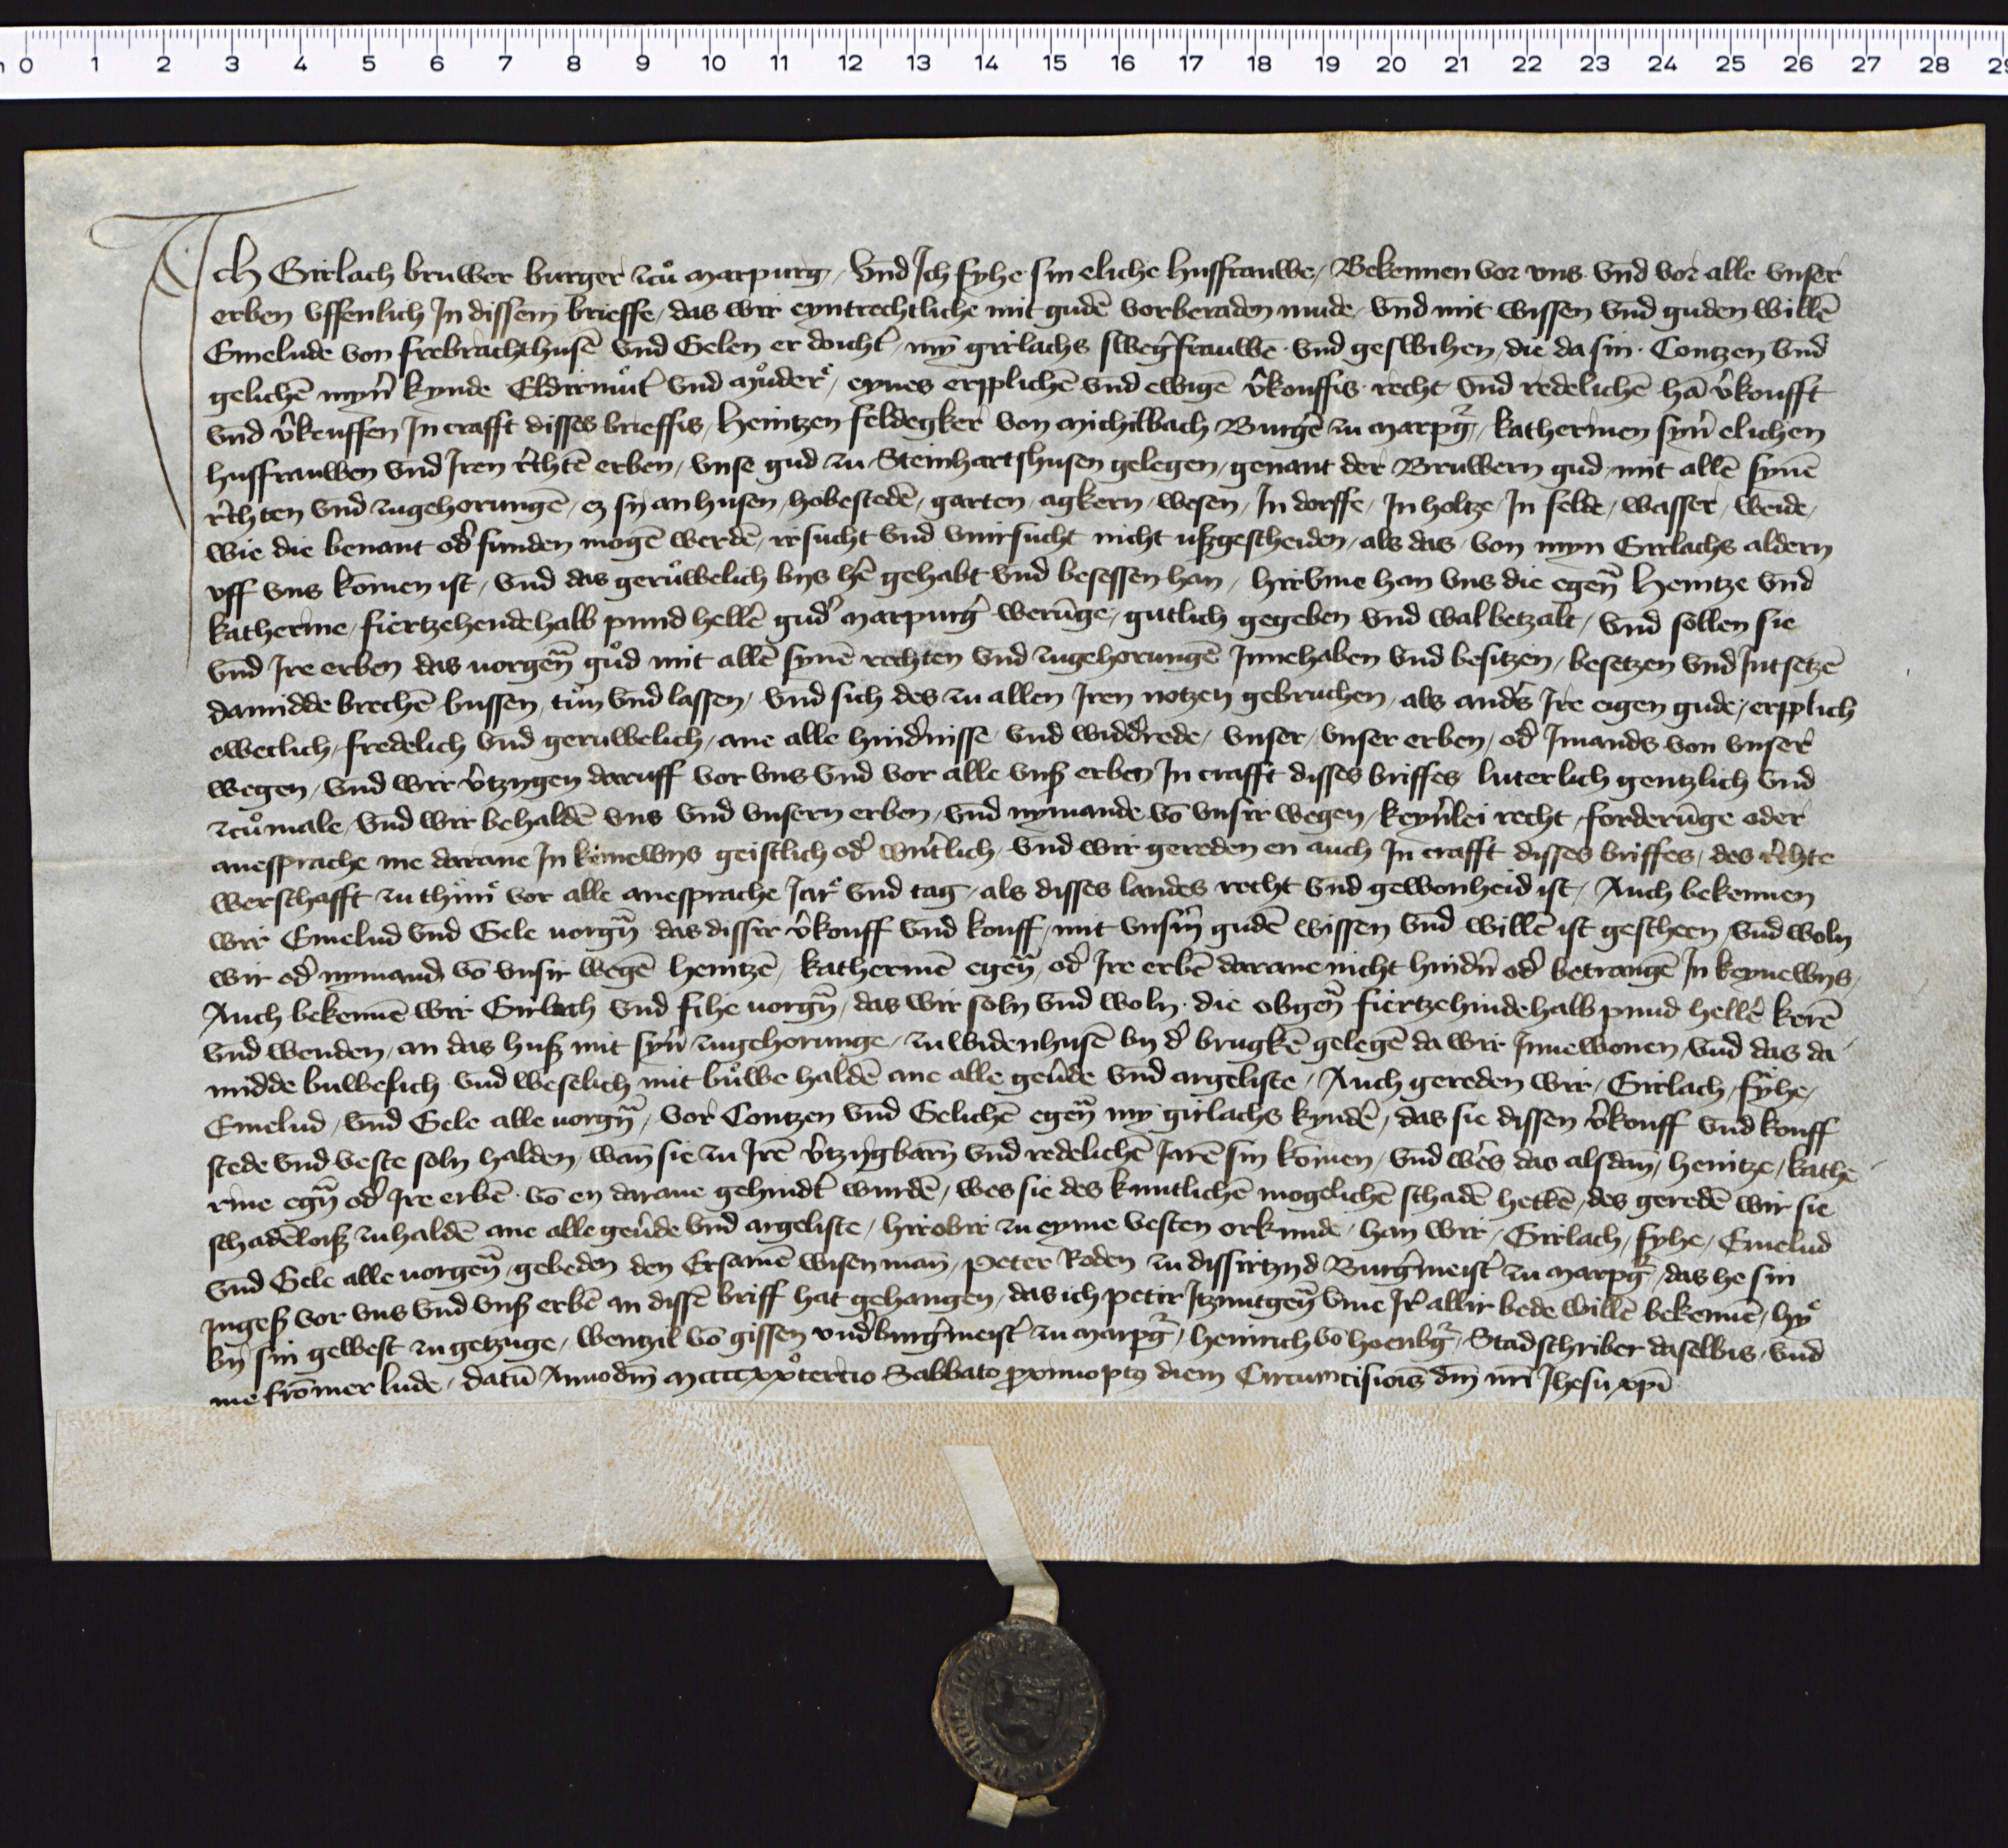 0 1 2 3 4 5 6 7 8 9 10 11 12 13 14 15 16 17 18 19 20 21 22 23 24 25 26 27 28 29
Ich Girlach bruwer burger zců Marpurg / vnd Jch fyhe sin eliche husfrauwe / Bekennen vor vns vnd vor alle vnser
erben vffenlich Jn dissem brieffe / das wir eyntrechtliche mit gudē vorberaden mude / vnd mit wissen vnd guden willē
Emelude von frebrachthusē vnd Gelen er docht' / myn girlachs swegerfrauwē vnd geswihen / die da sin Contzen vnd
gelichē myn' kynde Eldirmůt' vnd můder / eynes erpplichē vnd ewigē v'kouffis recht vnd redelichē hā v'koufft
vnd v'keuffen Jn crafft disses brieffis / Heintzen feldegker von Michilbach Burg'e zu Marpg' / katherinen syn' elichen
husfrauwen vnd Jren r'chtē erben / vnse gud zu Steinhartshusen gelegen / genant der Bruwern gud / mit allē synē
r'chten vnd zugehorungē / ez sy an husen / hobestedē / garten / agkern / wesen / Jn dorffe / Jn holtze / Jn felde / wasser / weide /
wie die benant od' funden mogē werdē / irsucht vnd vnirsucht nicht vßgescheiden / als das von myn Girlachs aldern
vff vns komen ist / vnd das gerůwelich bys h'e gehabt vnd besessen han / hirvme han vns die egen̄ Heintze vnd
katherine / fiertzehendehalb pund hell'e gud' Marpurg' werūge / gutlich gegeben vnd wal betzalt / vnd sollen sie
vnd Jre erben das uorgen̄ gůd mit allē synē rechten vnd zugehorungē Jnnehaben vnd besitzen / besetzen vnd Jntsetzē
damidde brechē bussen / tůn vnd lassen / vnd sich des zu allen Jren notzen gebruchen / als and's Jre eigen gude / erpplich
eweclich / fredelich vnd geruwelich / ane alle hind'nisse vnd widd'rede / vnser / vnser erben / od' Jmands von vnser
wegen / vnd wir v'tzygen daruff vor vns vnd vor alle vnß erben Jn crafft disses briffes luterlich gentzlich vnd
zcůmale / vnd wir behaldē vns vnd vnsern erben / vnd nymande vō vnsir wegen / keyn'lei recht / forderūge oder
anesprache me darane Jn keinewys geistlich od' wn'tlich / vnd wir gereden en auch Jn crafft disses briffes / des r'chte
werschafft zu thun vor alle anesprache Jar vnd tag / als disses landes recht vnd gewonheid ist / Auch bekennen
wir Emelud vnd Gele uorgn̄ das dissir v'kouff vnd kouff / mit vnsm' gudē wissen vnd willē ist gescheen / vnd woln
wir od' nymand vō vnsir wegē Heintzē / katherinē egen̄ / od' Jre erbē darane nicht hind'n od' betrangē Jn keynewys /
Auch bekennē wir Girlach vnd fihe uorgn̄ / das wir soln vnd woln die obgen̄ fiertzehindehalb pund hell'e kerē
vnd wenden / an das huß mit syn' zugehorunge / zu widenhusē by d' brugkē gelegē da wir Jnnewonen / vnd das da
midde buwelich vnd weselich mit bůwe haldē ane alle geu'de vnd argeliste / Auch gereden wir / Girlach / fyhe /
Emelud / vnd Gele alle uorgn̄ / vor Contzen vnd Gelichē egen̄ my girlachs kynd'e / das sie dissen v'kouff vnd kouff
stede vnd veste soln halden / wan̄ sie zu Jrē v'tzygbarn̄ vnd redelichē Jarē sin komen / vnd wer's das alsdan̄ / Heintze / kathe
rine egn̄ od' Jre erbē vō en darane gehindt' wurdē / wes sie des kuntlichē mogelichē schadē hettē / des geredē wir sie
schadēloiß zu haldē ane alle geu'de vnd argeliste / Hirobir zu eyme vesten orkunde / han wir / Girlach / fyhe / Emelud
vnd Gele alle uorgen̄ / gebeden den Ersamē wisen man̄ / Peter Roden zu dissirtzyd Burg'meist' zu Marpg' / das he sin
Jngeß vor vns vnd vnß erbē an dissē briff hat gehangen / das ich petir Jtzuntgen̄ vme Jr' allir bede willē bekennē / hy
by sin gewest zu getzuge / wentzil vō gissen vnd'burg'meist' zu Marpg' / Heinrich vō hoenbg' / Stadschriber daselbis / vnd
me fromer lude / datū Anno dm̄ mccccxxo tercio Sabbato proximo post diem Circumcisiois dm̄ nr̄i Jhesu xpi